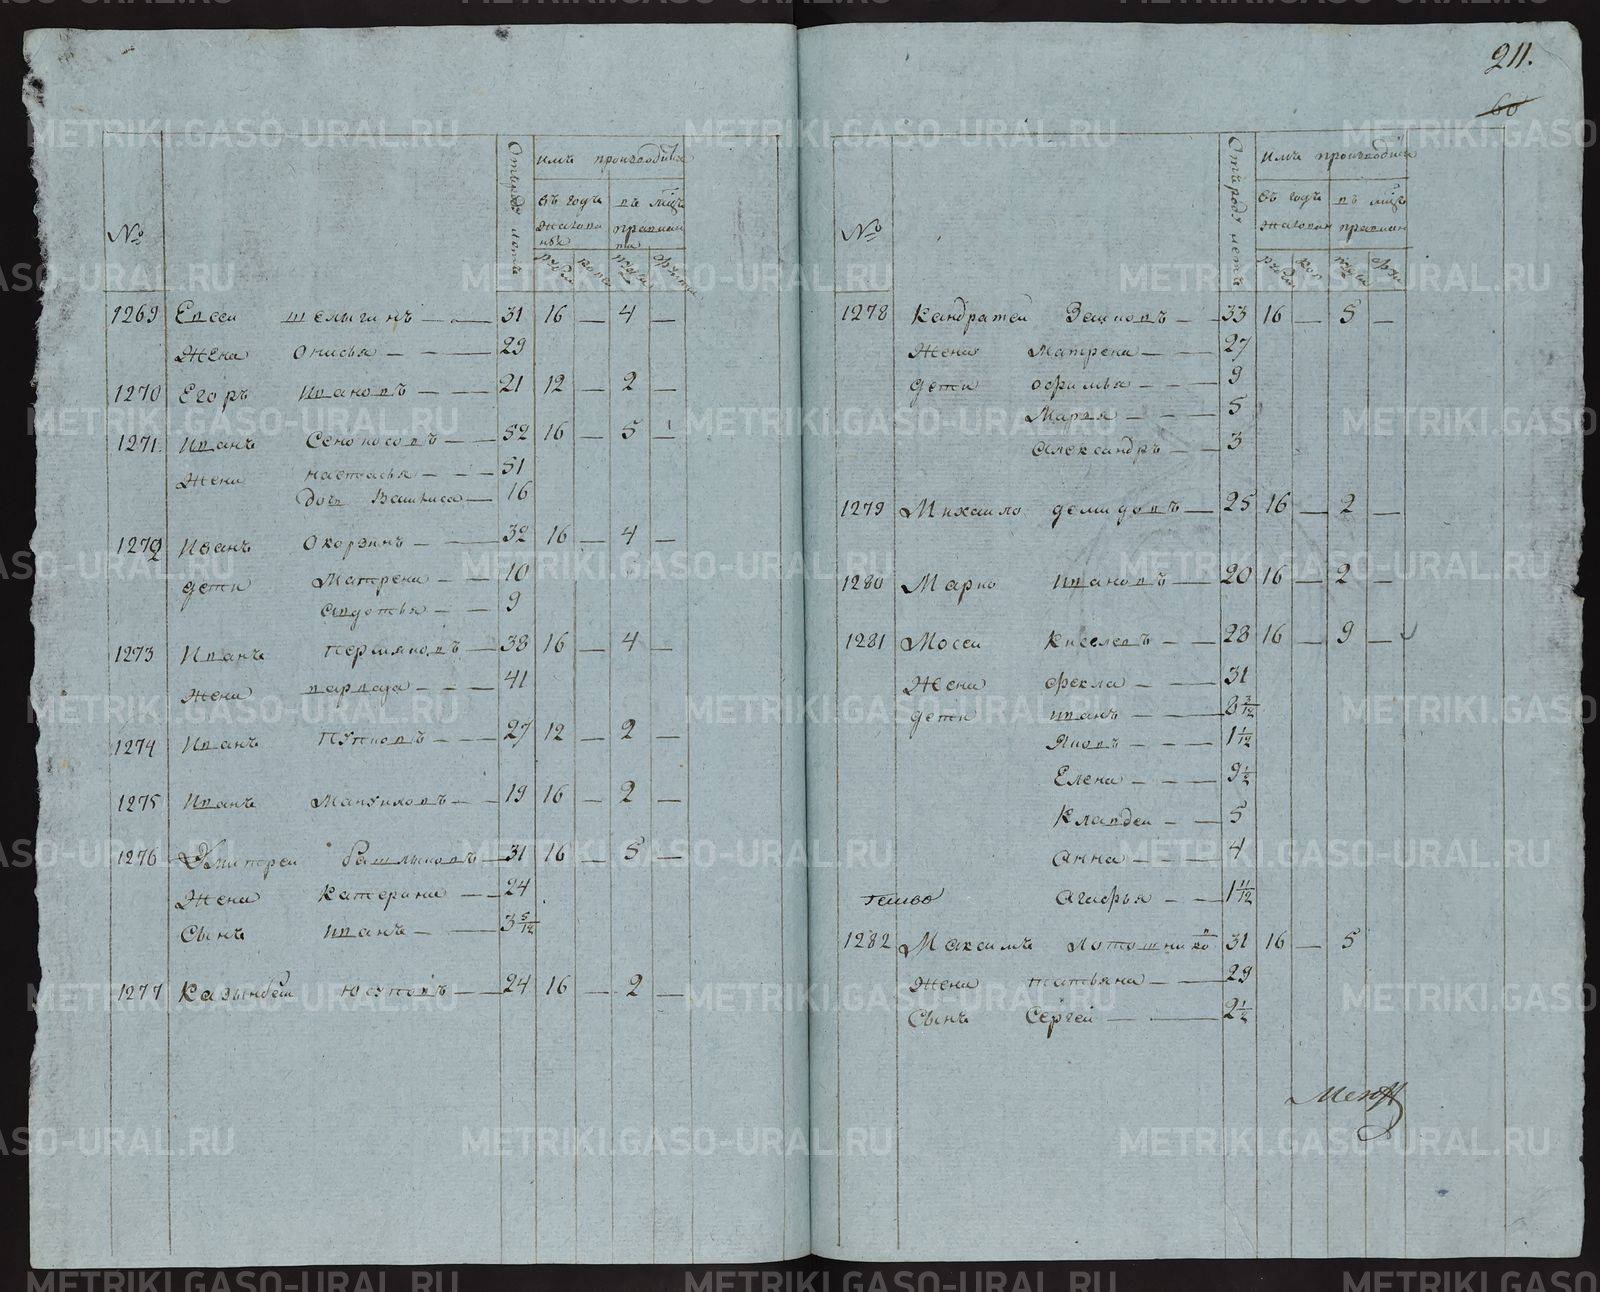 211.
60
№
Отъ роду летъ
имъ производится
въ годъ
жалованья
въ мѣц
правианта
рубли
копе
пуды
фунты
1269 Евсеи шелыгинъ — — 31 16 — 4 —
Жена Онисья — — — 29
1270 Егоръ Ивановъ — — — 21 12 — 2 —
1271. Иванъ Сеноносовъ — — 52 16 — 5 —
Жена настасья — — — 51
дочь Вашлиса — 16
1272 Иванъ Окорзинъ — — 32 16 — 4 —
дети Матрена — — 10
авдотья — — 9
1273 Иванъ першяковъ — 38 16 — 4 —
Жена варвара — — — 41
1274 Иванъ Путковъ — — 27 12 — 2 —
1275 Иванъ Мануиловъ — — 19 16 — 2 —
1276 Дмитреи башлыковъ — 31 16 — 5 —
Жена Катерина — — 24
Сынъ иванъ — — 3 5/12
1277 Казынбаи Юсуповъ — — 24 16 — 2 —
№
Отъ роду летъ
имъ производится
въ годъ
жалован
въ мѣц
правиан
рубли
коп
пуды
фун
1278 Кандратеи Зацковъ — — 33 16 — 5 —
Жена Матрена — — 27
дети офимья — — — 9
Марья — — — 5
Александръ — — 3
1279 Михаило демидовъ — 25 16 — 2 —
1280 Марко Ивановъ — — 20 16 — 2 —
1281 Мосеи Киселевъ — — 28 16 — 9 —
Жена фекла — — 31
дети иванъ — — 8 3/12
Яковъ — — — 1 1/12
Елена — — — 9 1/2
Клавдеи — — 5
анна — — — 4
Агафья — — 1 11/12
1282 Максимъ Лотошниковъ 31 16 — 5
Жена татьяна — — 29
Сынъ Сергеи — — 2 1/2
METRIKI.GASO-URAL.RU